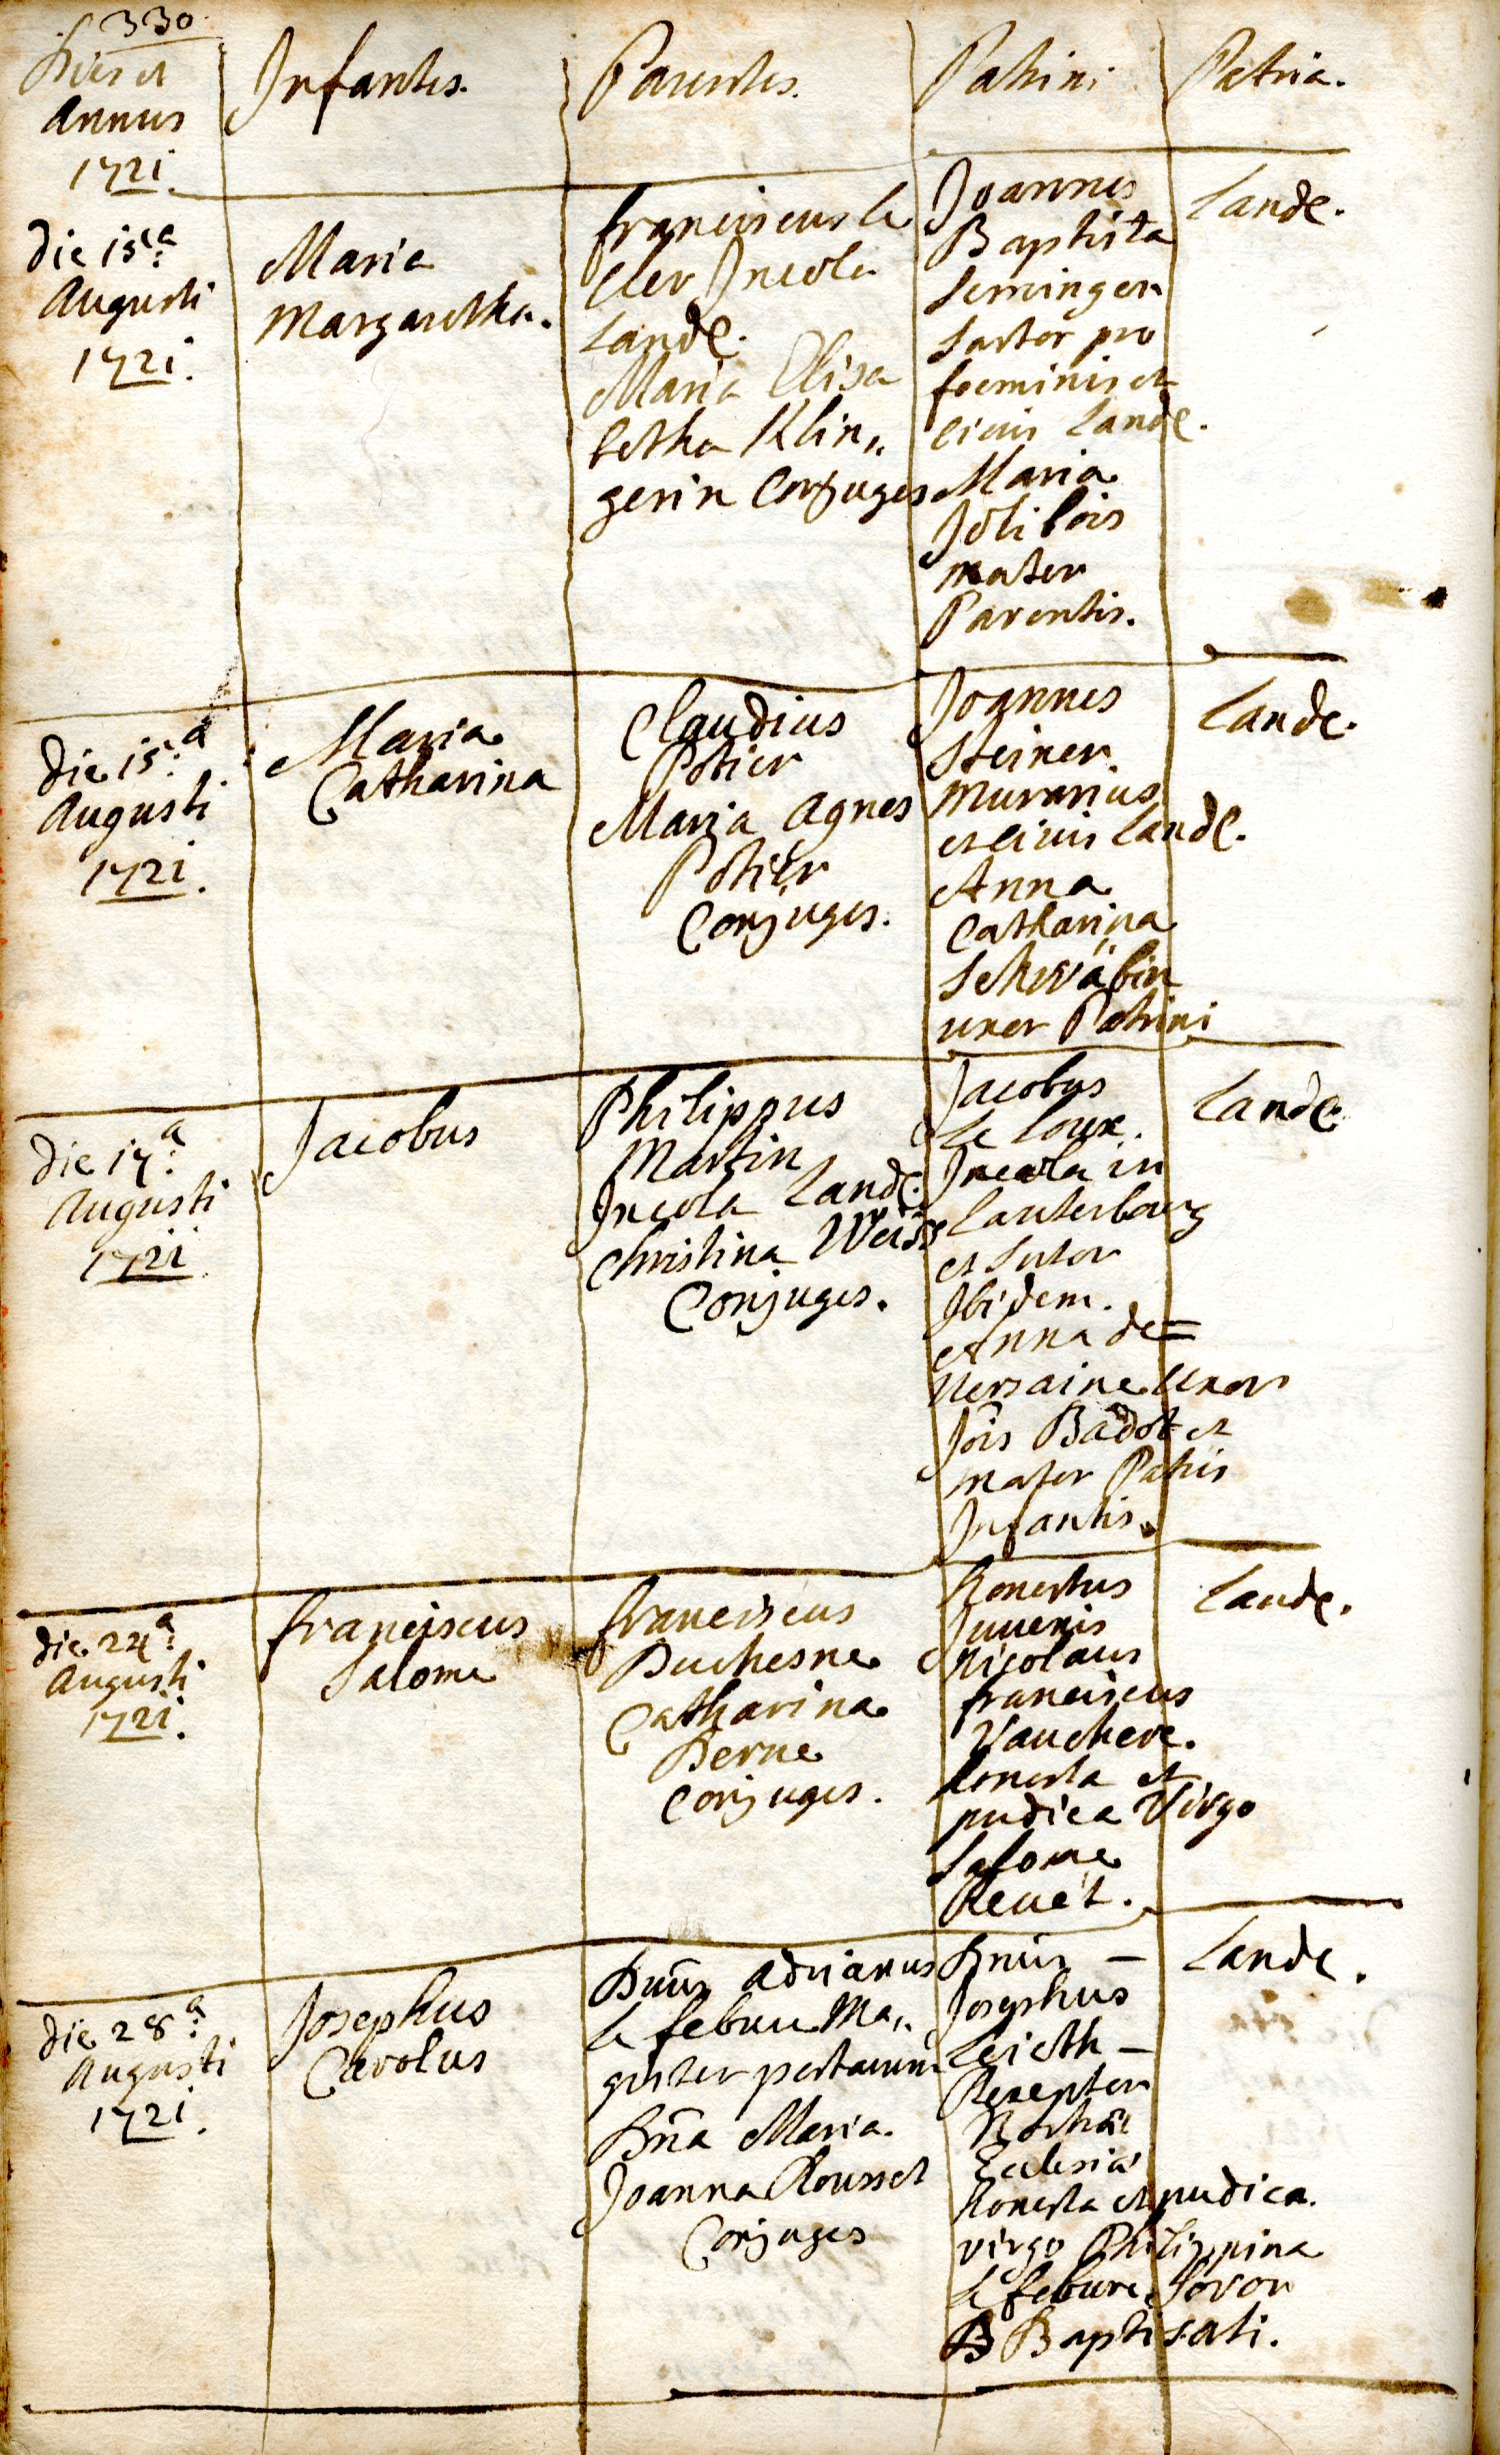 330
Dies et
Annus
1721.
Infantes.
Parentes.
Patrini
Patria.
die 15ta
Augusti
1721.
Maria
Margaretha.
franciscus le
Cler Incola
Land.
Maria Elisa
betha Klin„
gerin Conjuges
Joannes
Baptista
Seminger
Sartor pro
foeminis et
civis Land.
Maria
Jolibois
mater
Parentis.
Lande.
die 15.a
Augusti
1721.
Maria
Catharina
Claudius
Potier
Maria Agnes
Potier
Conjuges.
Joannes
Steiner
Murarius
et civis Land.
Anna
Catharina
Schwäbin
uxor Patrini
Lande.
die 17.a
Augusti
1721.
Jacobus
Philippus
Martin
Incola Land.
Christina Weiss
Conjuges.
Jacobus
Le Loux.
Incola in
Lauterbourg
et Sutor
Ibidem.
Anna de=
Versaine Uxor
Jois Badot et
mater Patris
Infantis.
Lande.
die 24.a
Augusti
1721.
franciscus
Salome
franciscus
Duchesne
Catharina
Derne
Conjuges.
Honestus
Juvenis
Nicolaus
franciscus
Vauchere.
honesta et
pudica Virgo
Salome
Reuet.
Lande.
die 28.a
Augusti
1721.
Josephus
Carolus
Dnus Adrianus
le febure Ma„
gister portarum
Dna Maria
Joanna Rousset
Conjuges
Dnus –
Josephus
Leicth –
Receptor
Nostræ
Eclesiæ
honesta et pudica
virgo Philippina
Le febure Soror
B Baptisati.
Lande.